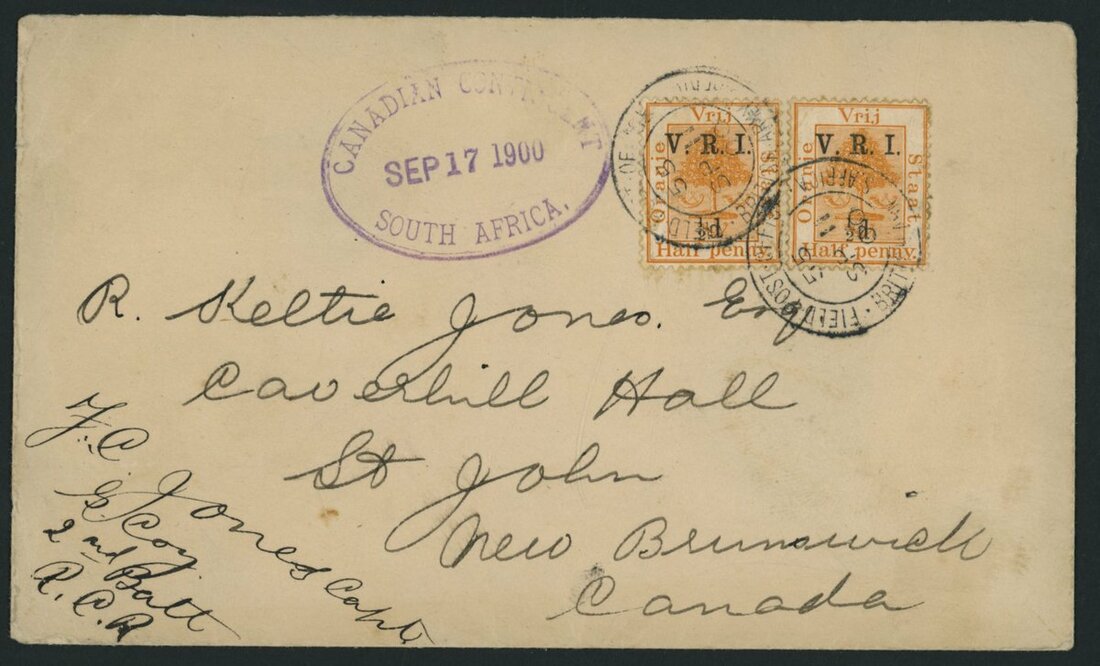 CANADIAN CONTINGENT
SEP 17 1900
SOUTH AFRICA.
Vrij
Oranje
Staat
V. R. I.
½d
Half penny.
Vrij
Oranje
Staat
V. R. I.
½d
Half penny.
FIELD POST OFFICE BRITISH ARMY
FIELD POST OFFICE BRITISH ARMY S. AFRICA
R. Keltie Jones. Esq
Caverhill Hall
St John
New Brunswick
Canada
F. C Jones Capt
G Coy
2nd Batt
R. C. R